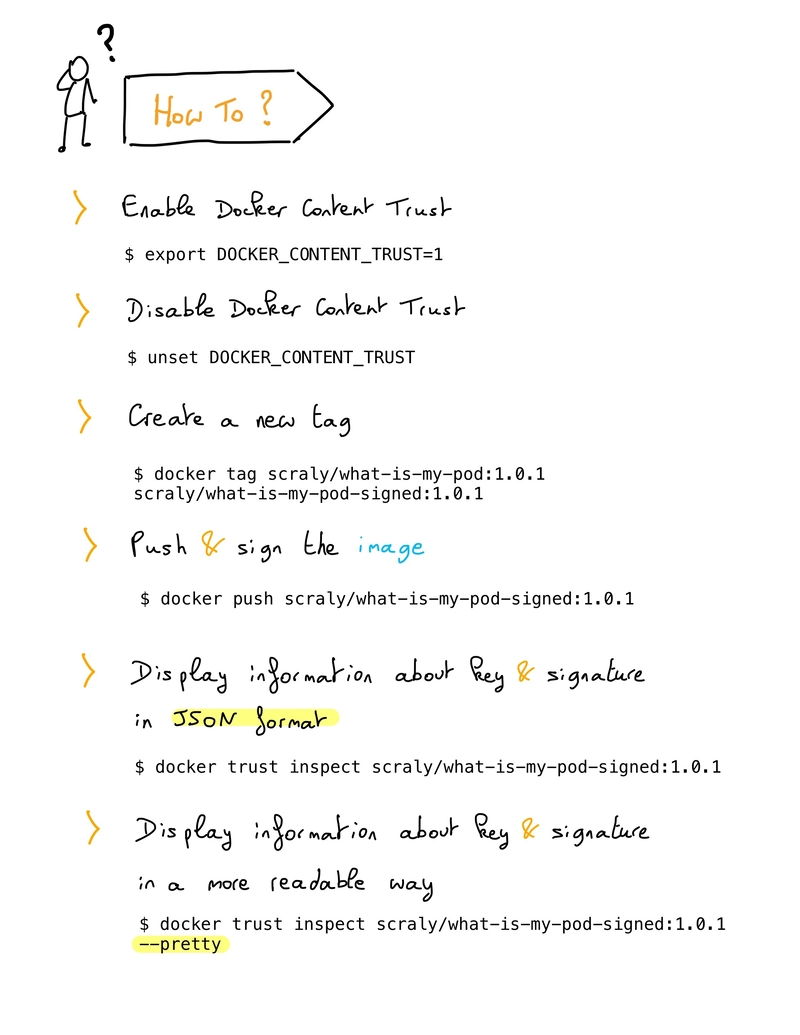 ?
How To ?
> Enable Docker Content Trust
$ export DOCKER_CONTENT_TRUST=1
> Disable Docker Content Trust
$ unset DOCKER_CONTENT_TRUST
> Create a new tag
$ docker tag scraly/what-is-my-pod:1.0.1
scraly/what-is-my-pod-signed:1.0.1
> Push & sign the image
$ docker push scraly/what-is-my-pod-signed:1.0.1
> Display information about key & signature
in JSON format
$ docker trust inspect scraly/what-is-my-pod-signed:1.0.1
> Display information about key & signature
in a more readable way
$ docker trust inspect scraly/what-is-my-pod-signed:1.0.1
--pretty